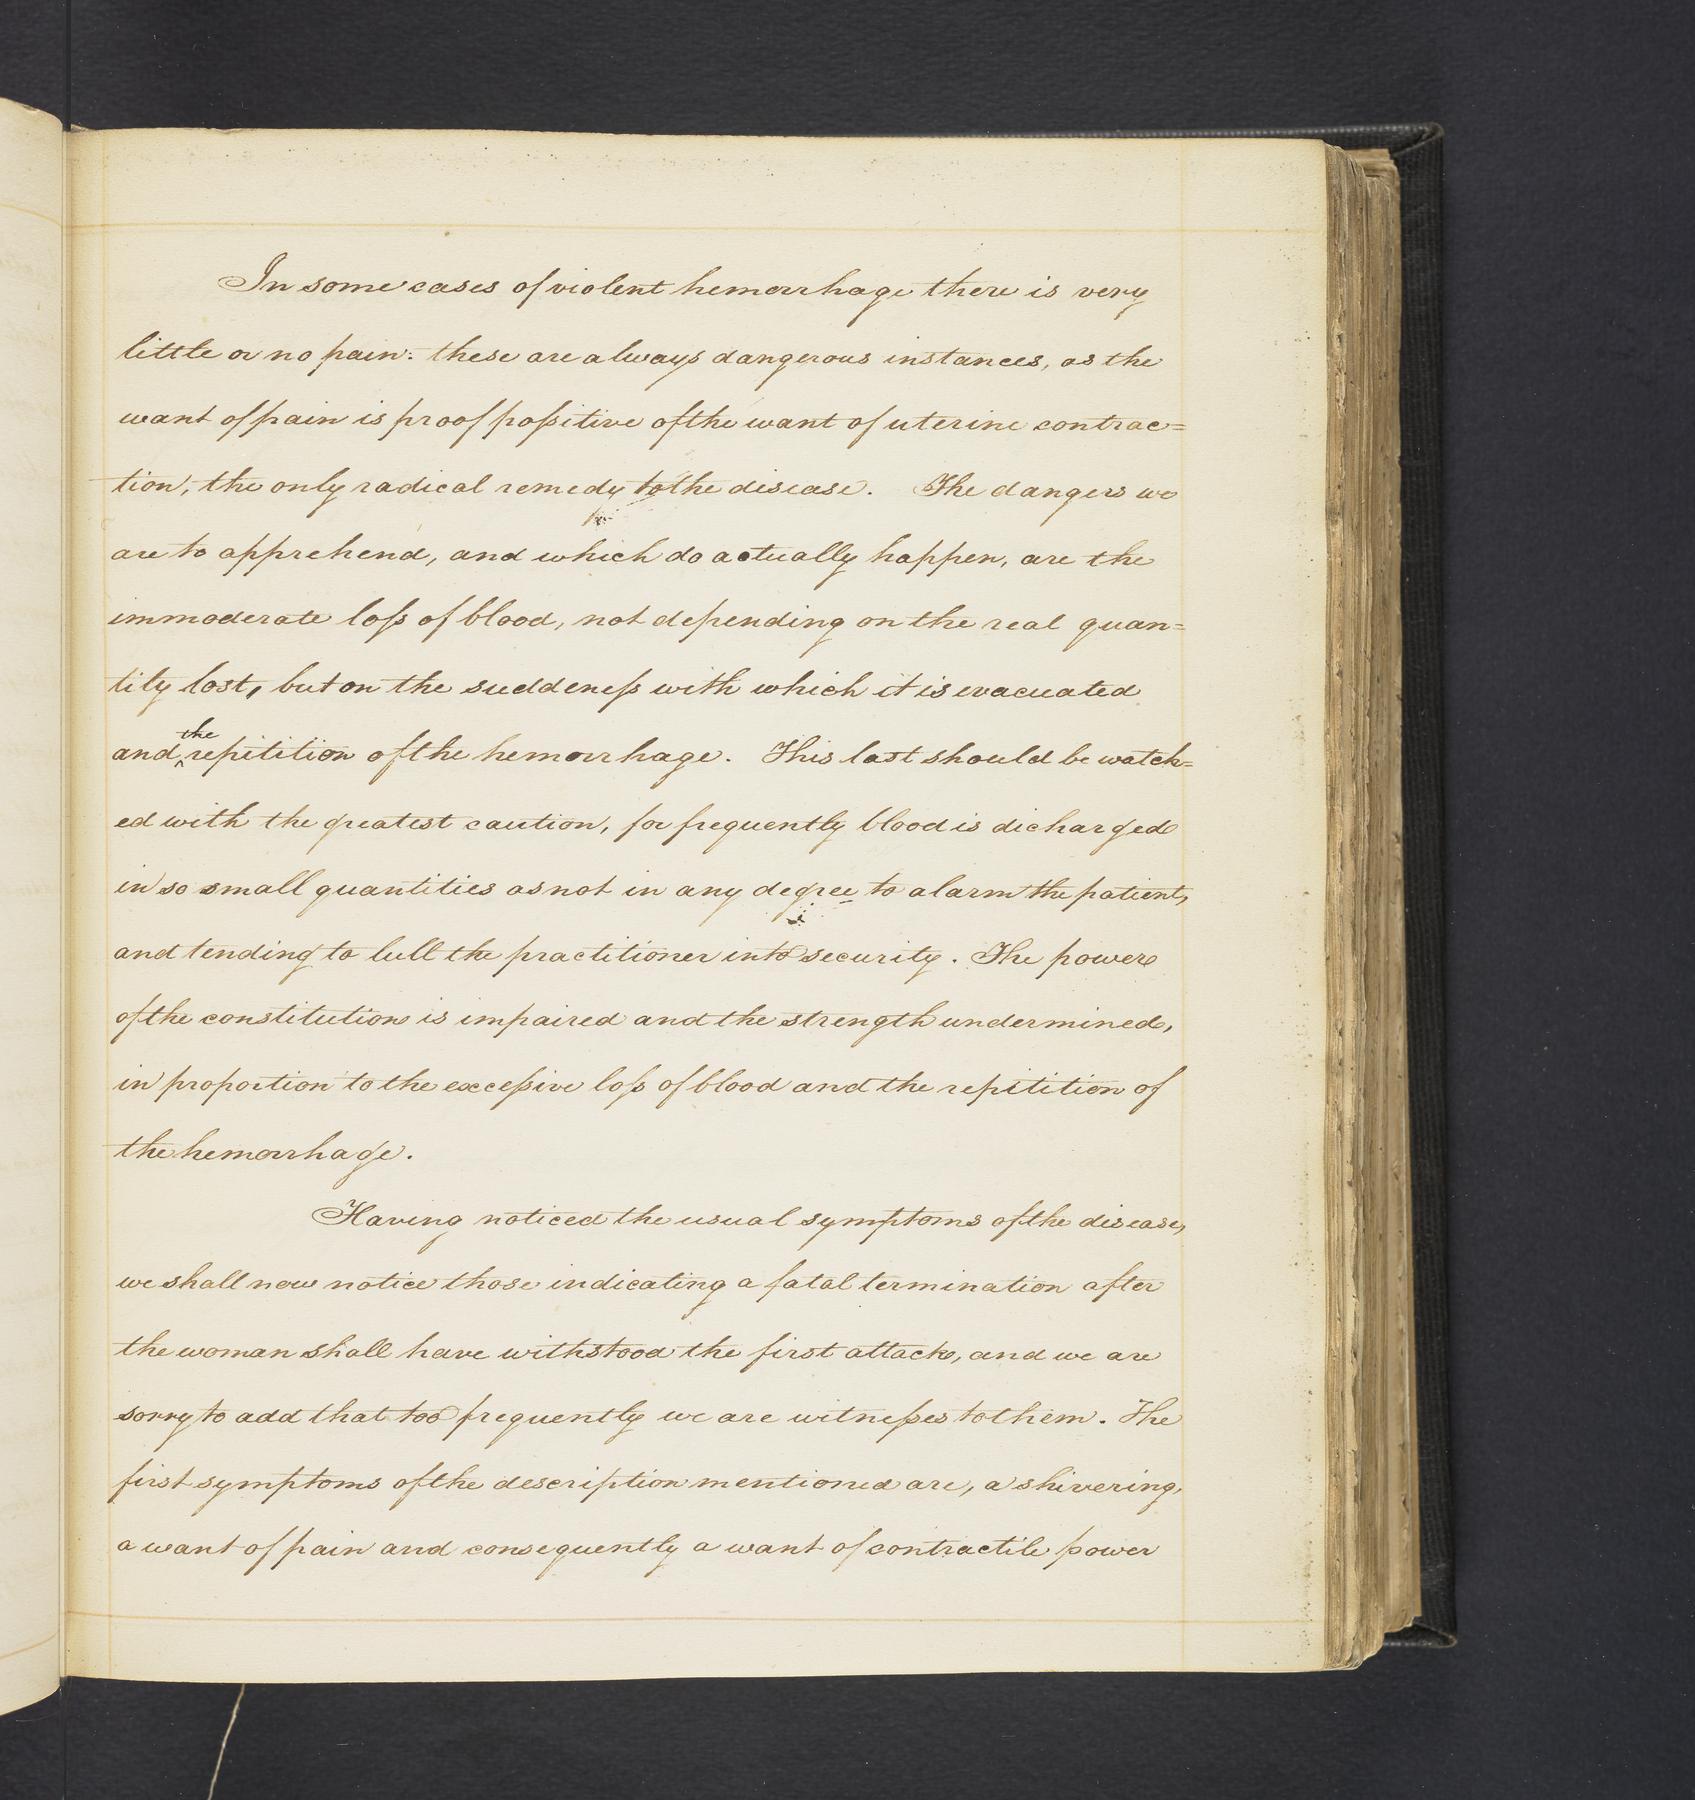 In some cases of violent hemorrhage there is very
little or no pain: these are always dangerous instances, as the
want of pain is proof poſsitive of the want of uterine contrac=
tion, the only radical remedy to the disease. The dangers we
are to apprehend, and which do actually happen, are the
immoderate loſs of blood, not depending on the real quan=
tity lost, but on the suddeneſs with which it is evacuated
and ^the repitition of the hemorrhage. This last should be watch=
ed with the greatest caution, for frequently blood is dicharged
in so small quantities as not in any degree to alarm the patient,
and tending to lull the practitioner into security. The power
of the constitution is impaired and the strength undermined,
in proportion to the exceſsive loſs of blood and the repitition of
the hemorrhage.
Having noticed the usual symptoms of the disease,
we shall now notice those indicating a fatal termination after
the woman shall have withstood the first attack, and we are
sorry to add that too frequently we are witneſses to them. The
first symptoms of the description mentioned are, a shivering,
a want of pain and consequently a want of contractile power